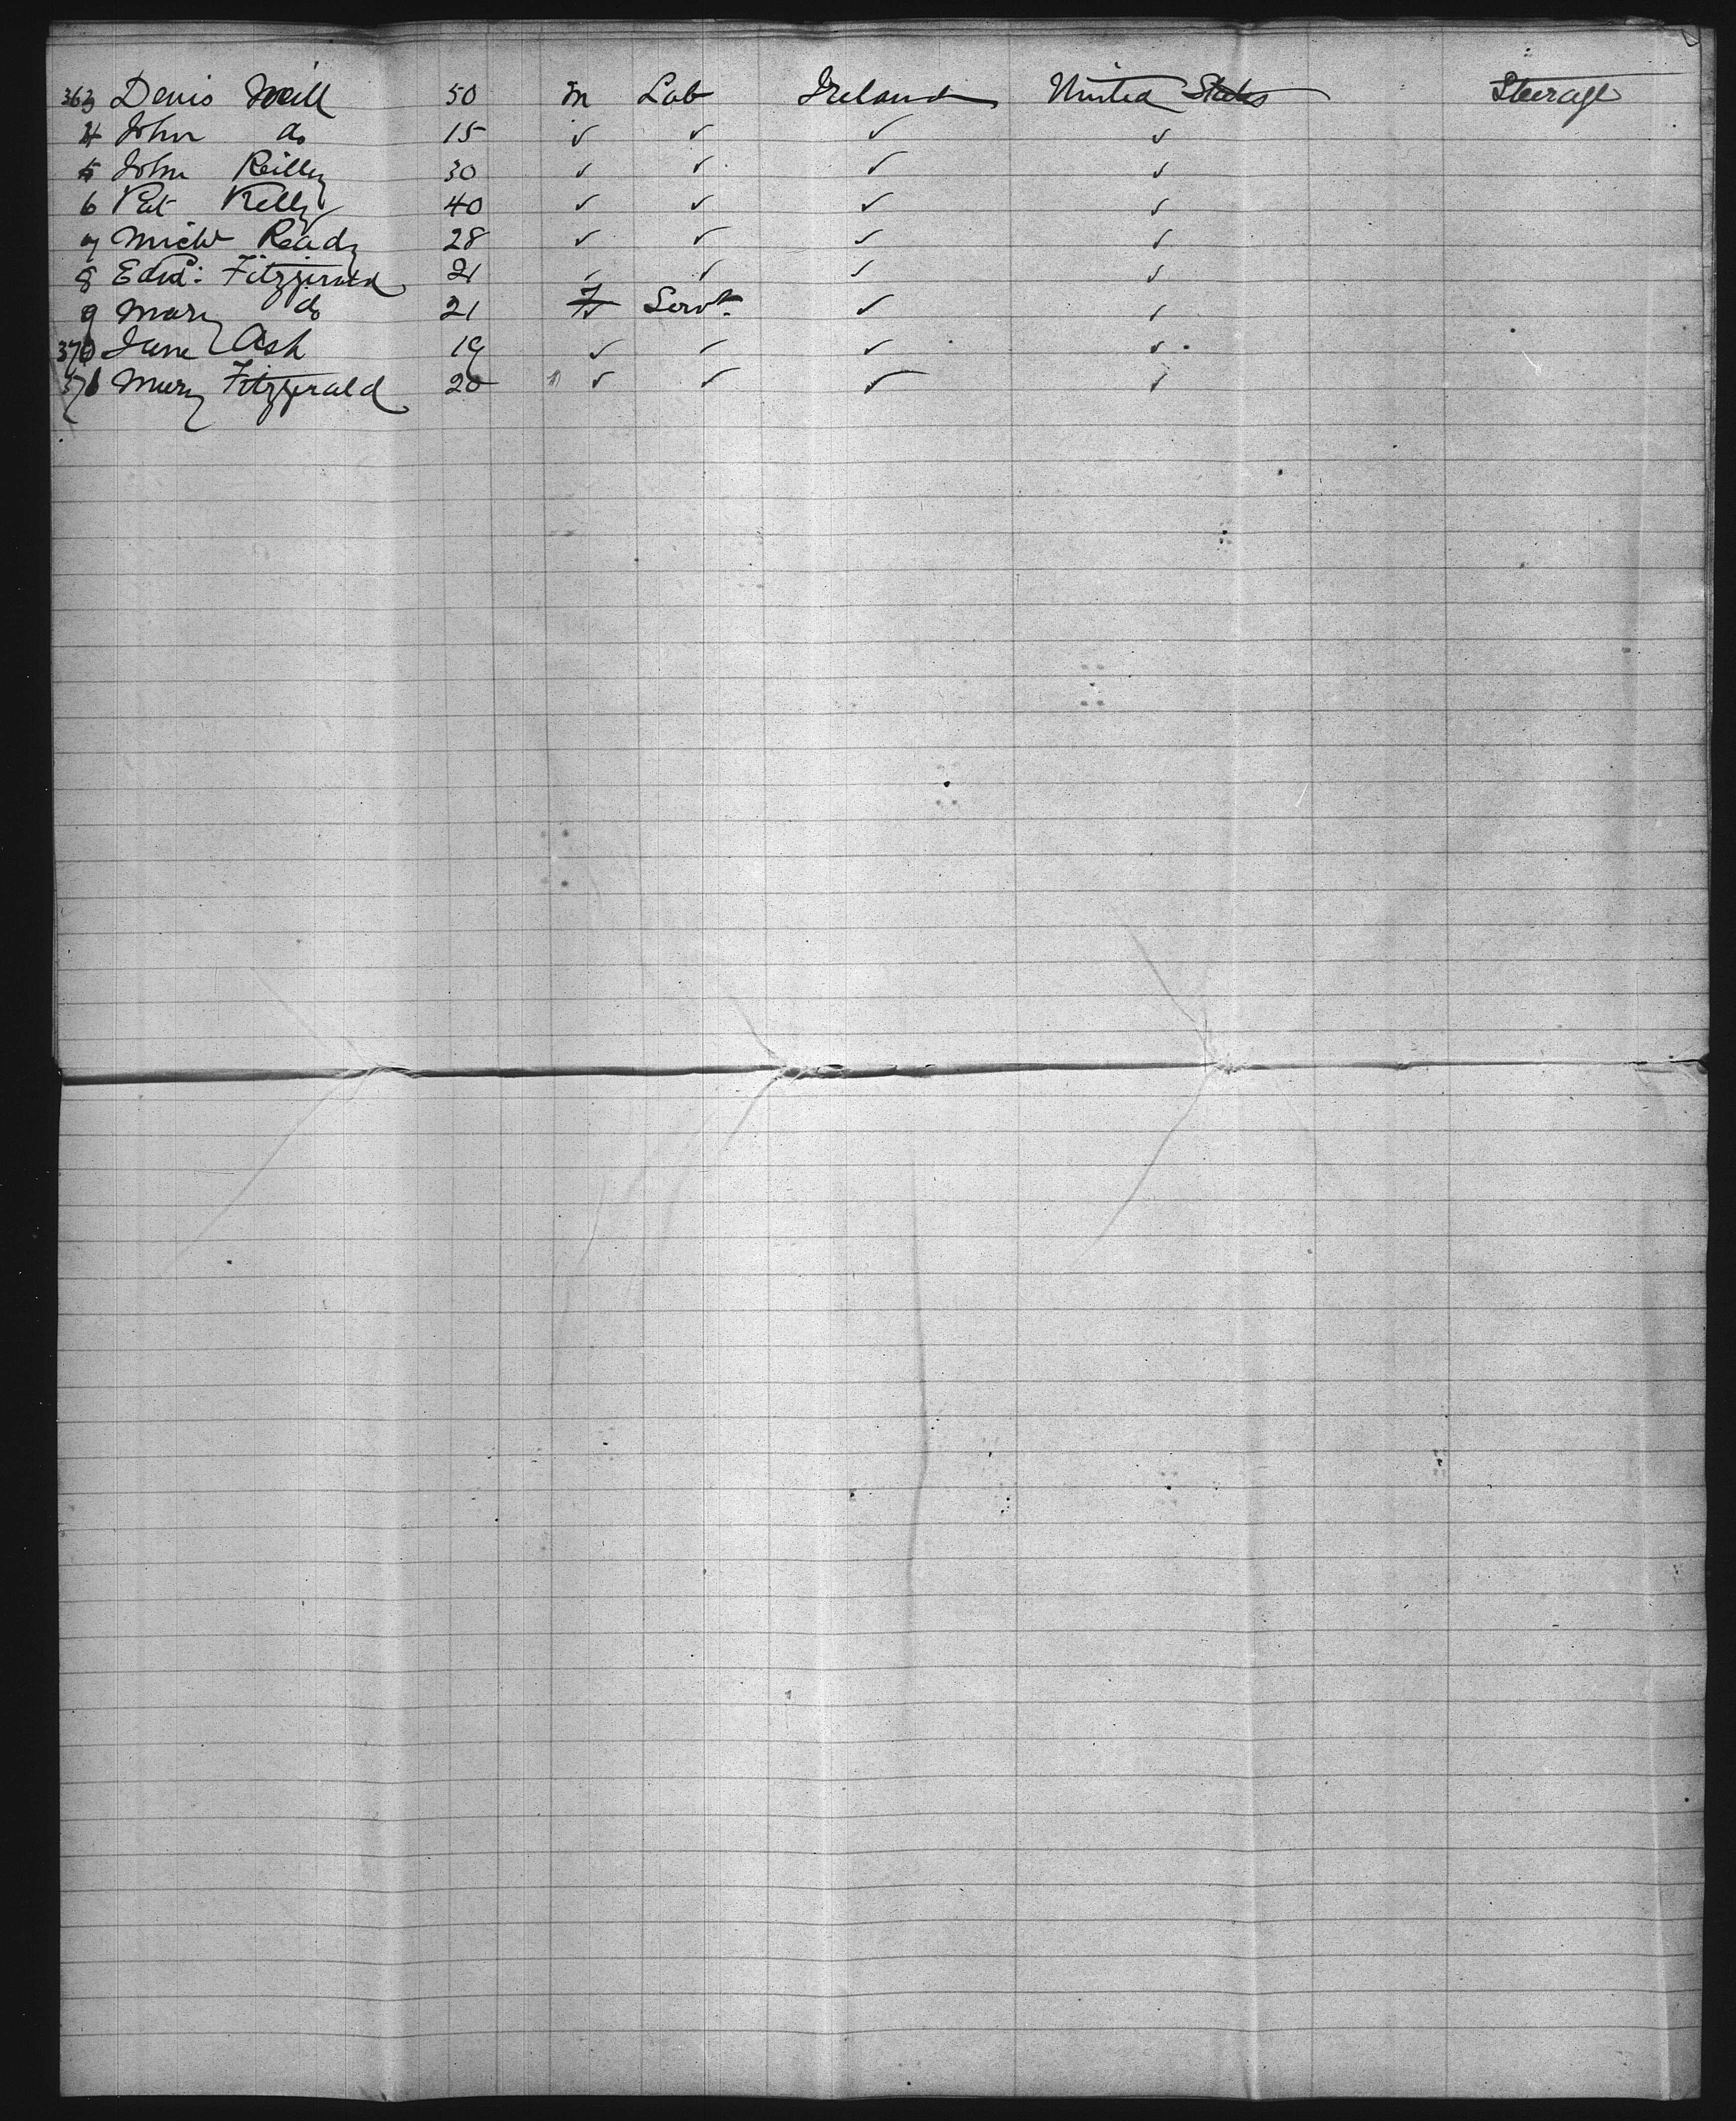 363 Denis Neill 50 m Lab Ireland United States Steerage
4 John do 15 ✓ ✓ ✓ ✓
5 John Reilly 30 ✓ ✓ ✓ ✓
6 Pat Kelly 40 ✓ ✓ ✓ ✓
7 Michl Ready 28 ✓ ✓ ✓ ✓
8 Edwd: Fitzgerald 21 ✓ ✓ ✓ ✓
9 Mary do 21 F Servt. ✓ ✓
370 Jane Ash 19 ✓ ✓ ✓ ✓
371 Mary Fitzgerald 20 ✓ ✓ ✓ ✓